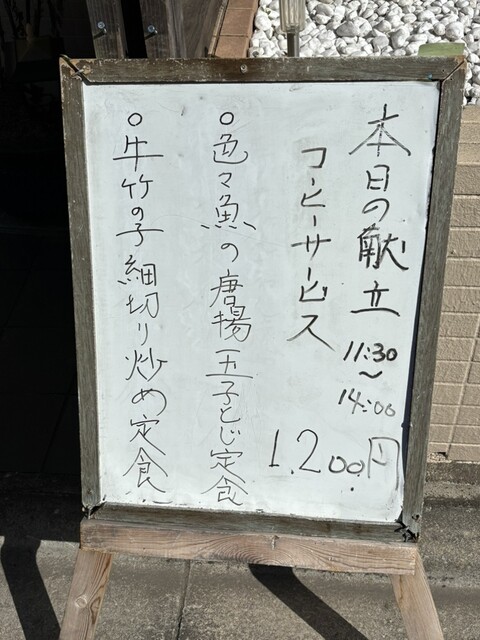 本日の献立 11:30〜14:00
コーヒーサービス
1.200.円
○色々魚の唐揚玉子とじ定食
○牛竹の子細切り炒め定食